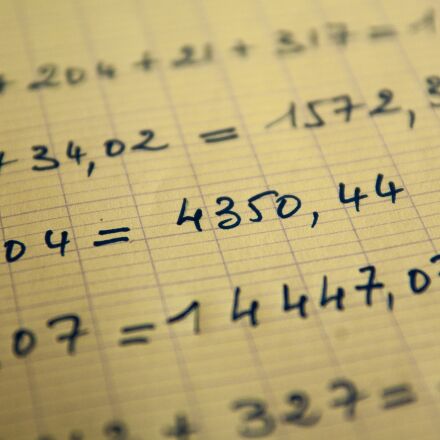 + 204 + 21 + 317 = 1
+ 34,02 = 1572,
04 = 4350,44
07 = 14447,0
+ 327 =